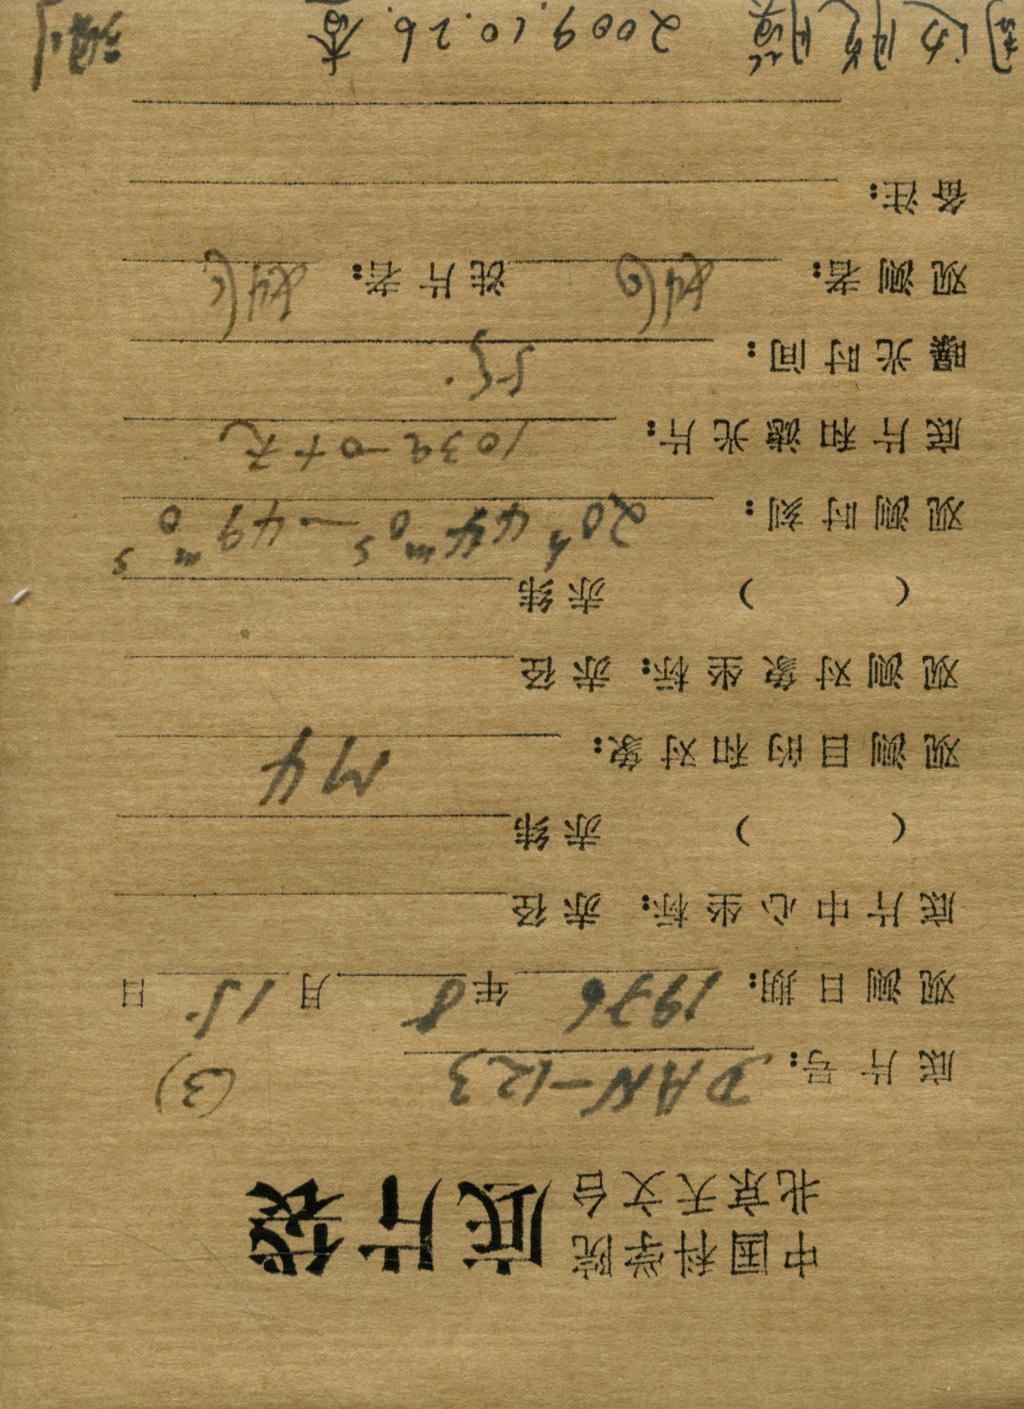 中国科学院
北京天文台
底片袋
底片号: DAN-123 (3)
观测日期: 1976年8月15日
底片中心坐标: 赤径
( ) 赤纬
观测目的和对象: M4
观测对象坐标: 赤径
( ) 赤纬
观测时刻: 20h44m0s—49m0s
底片和滤光片: 103a-O+无
曝光时间: 5分
观测者: 洗片者:
备注:
2009.10.26 查